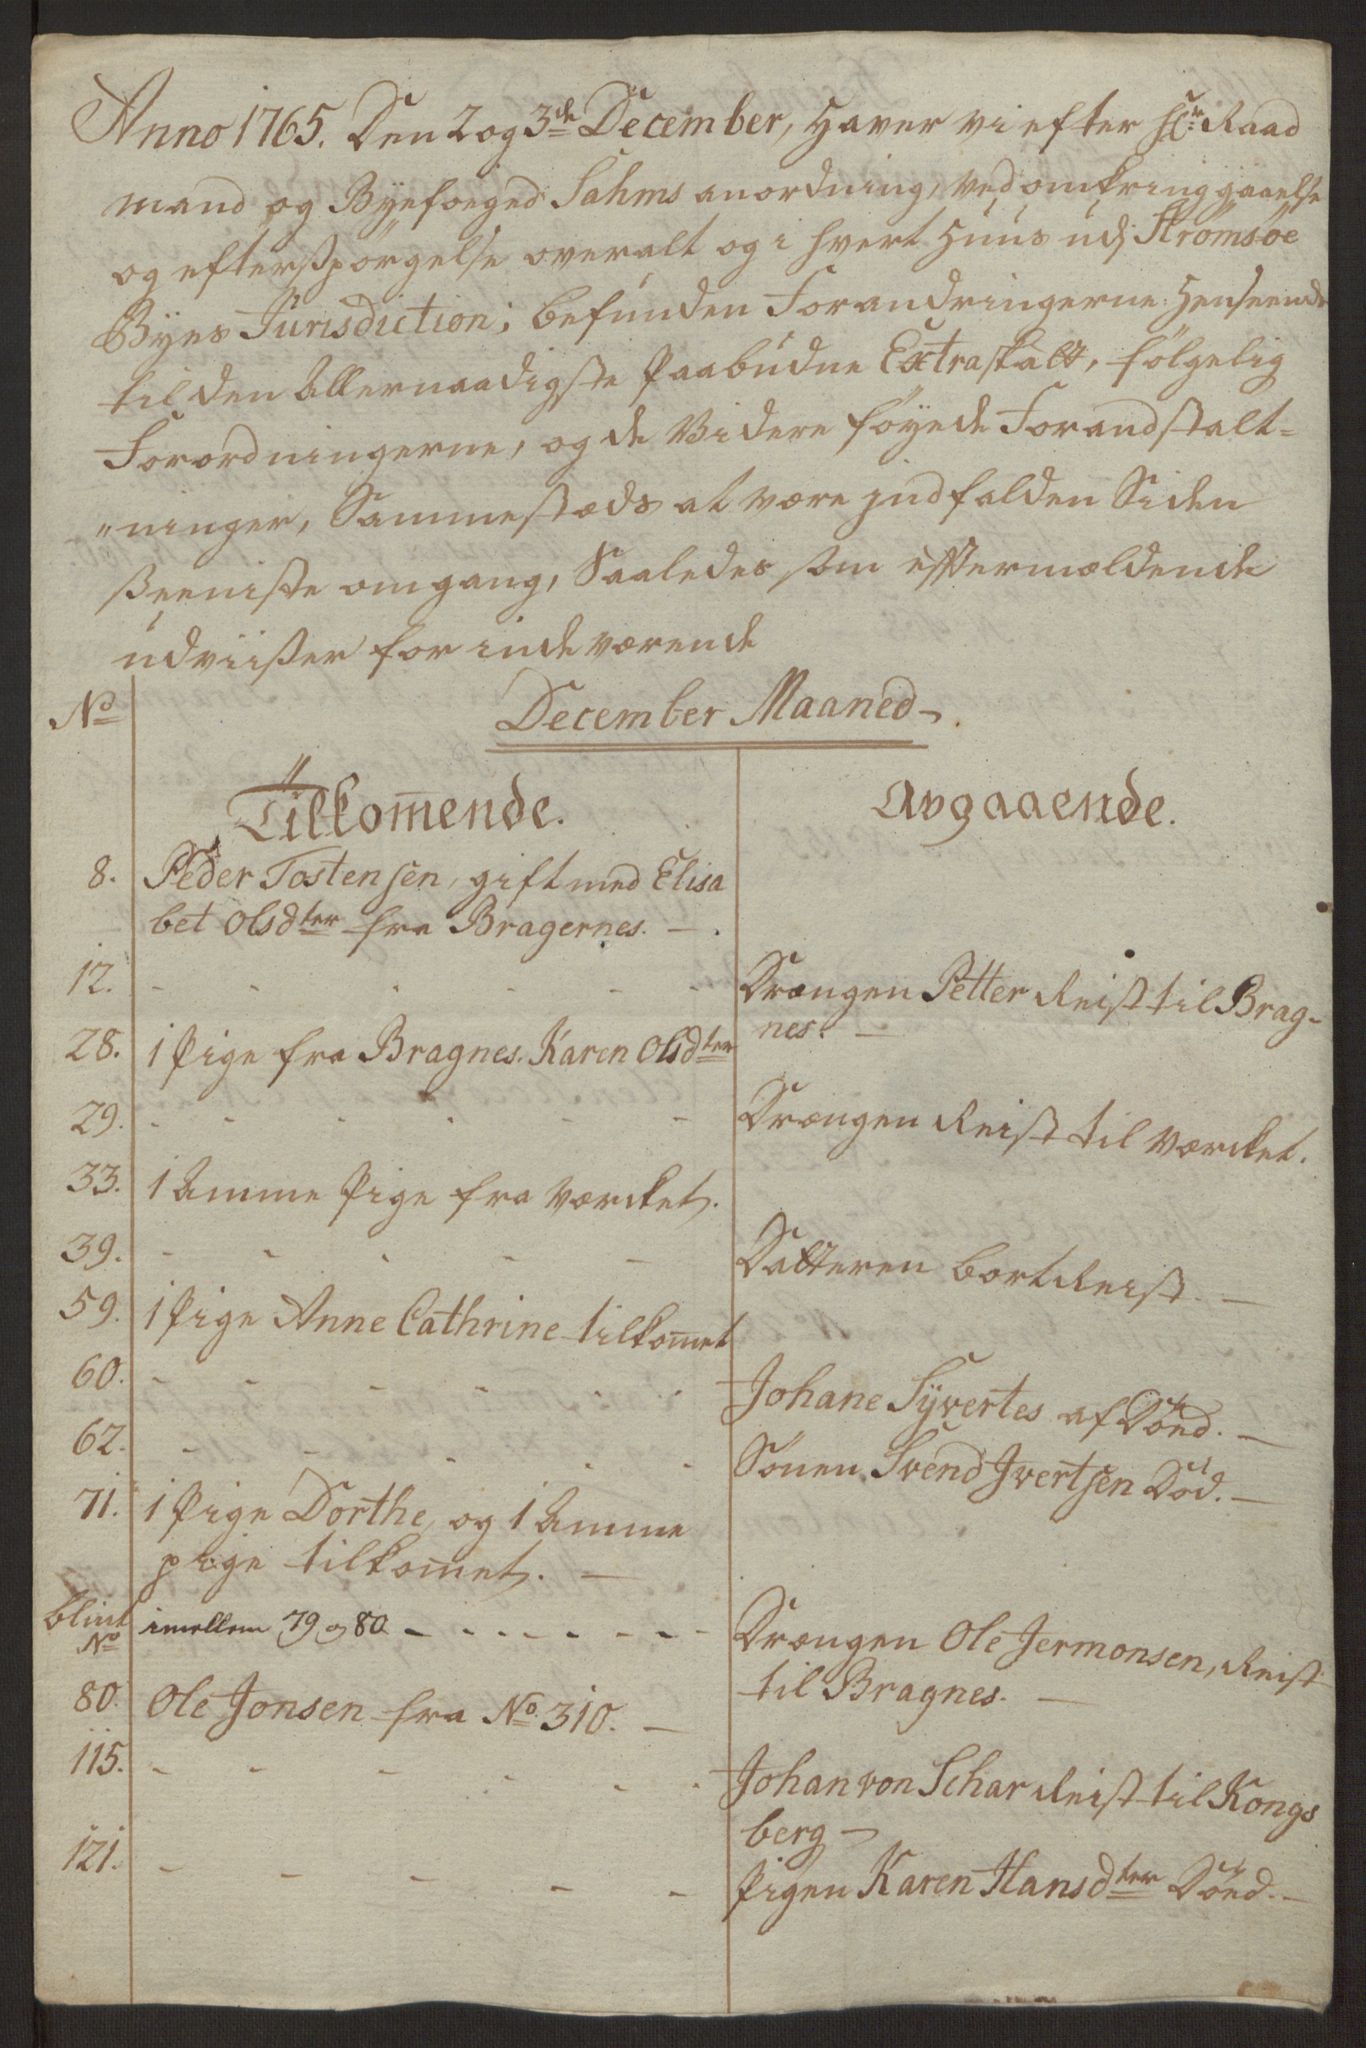 Anno 1765. Den 2 og 3de December, Haver vi efter Hr. Raad
mand og Byefoeged Sahms anordning, ved omkringgaaelse
og efterspørgelse overalt og i hvert Huus udj Strömsöe
Byes Jurisdiction; befunden Forandringerne Henseende
til den Allernaadigste Paabudne Extraskatt, følgelig
Forordningerne, og de Videre føyede Forandstalt=
"ninger, Sammestæds at være jndfalden Siden
seeniste omgang, Saaledes som eftermældende
udviiser for indeværende
No
December Maaned
Tilkom̅ende.
Avgaaende.
8. Peder Tostensen, gift med Elisa
bet Olsdter fra Bragernes. -
12. - - - - - - Drængen Petter Reist til Brag-
nes. -
28. 1 Pige fra Bragnes. Karen Olsdter
29. - - - - - - Drængen Reist til Værcket.
33. 1 Amme Pige fra Værcket.
39. - - - - - Datteren bortReist -
59. 1 Pige Anne Cathrine tilkom̅et
60. - - - - - - Johane Syvertes af Döed. -
62. - - - - - Sönen Svend Jvertsen Död. -
71. 1 Pige Dorthe, og 1 Amme
pige tilkom̅et. -
blint
No
imellem 79 og 80 - - - - - - - Drængen Ole Jermonsen, Reist
til Bragnes. -
80. Ole Jonsen fra No. 310. -
115. - - - - - - Johan von Schar Reist til Kongs
berg -
121. - - - - - Pigen Karen Hansdter Döed. -